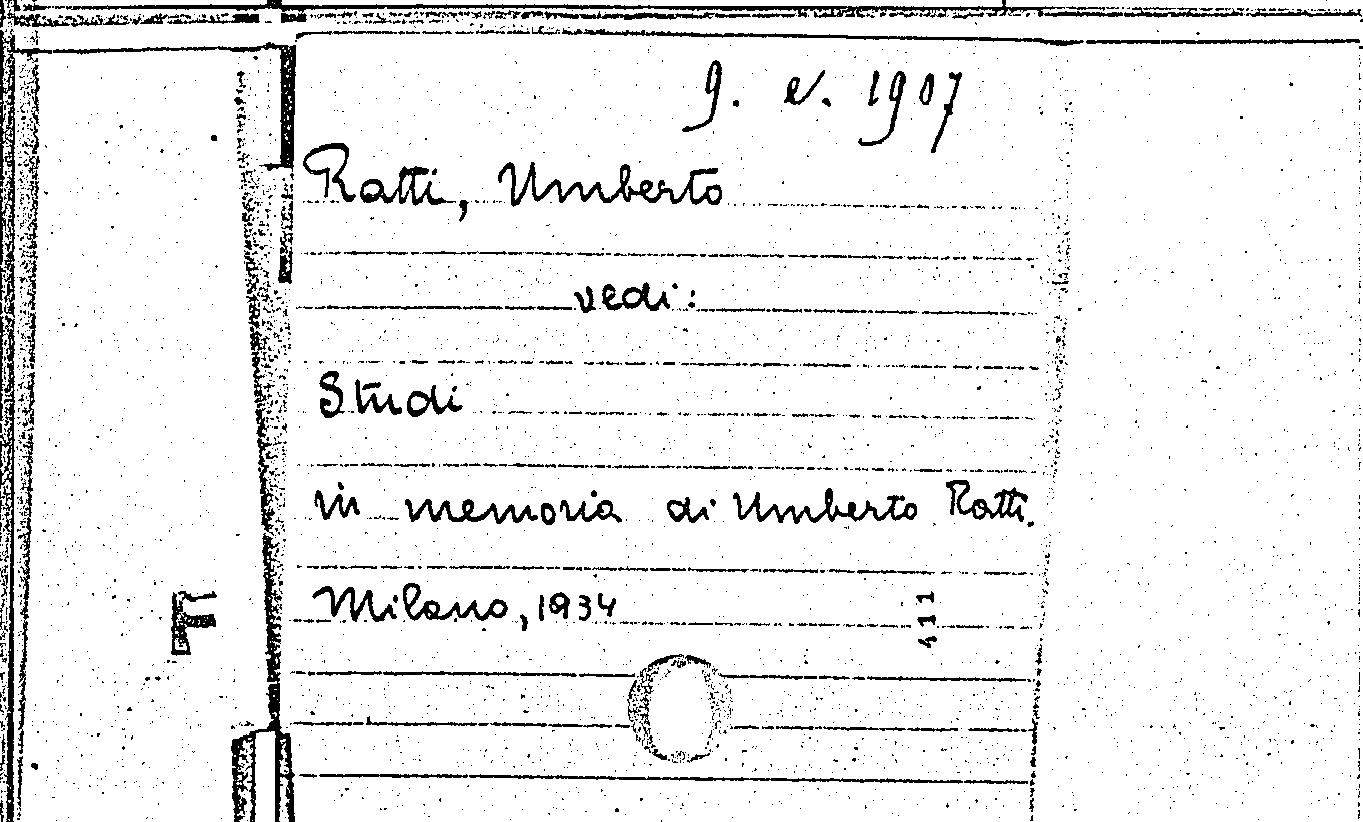 9. e. 1907
Ratti, Umberto
vedi:
Studi
in memoria di Umberto Ratti.
Milano, 1934
411